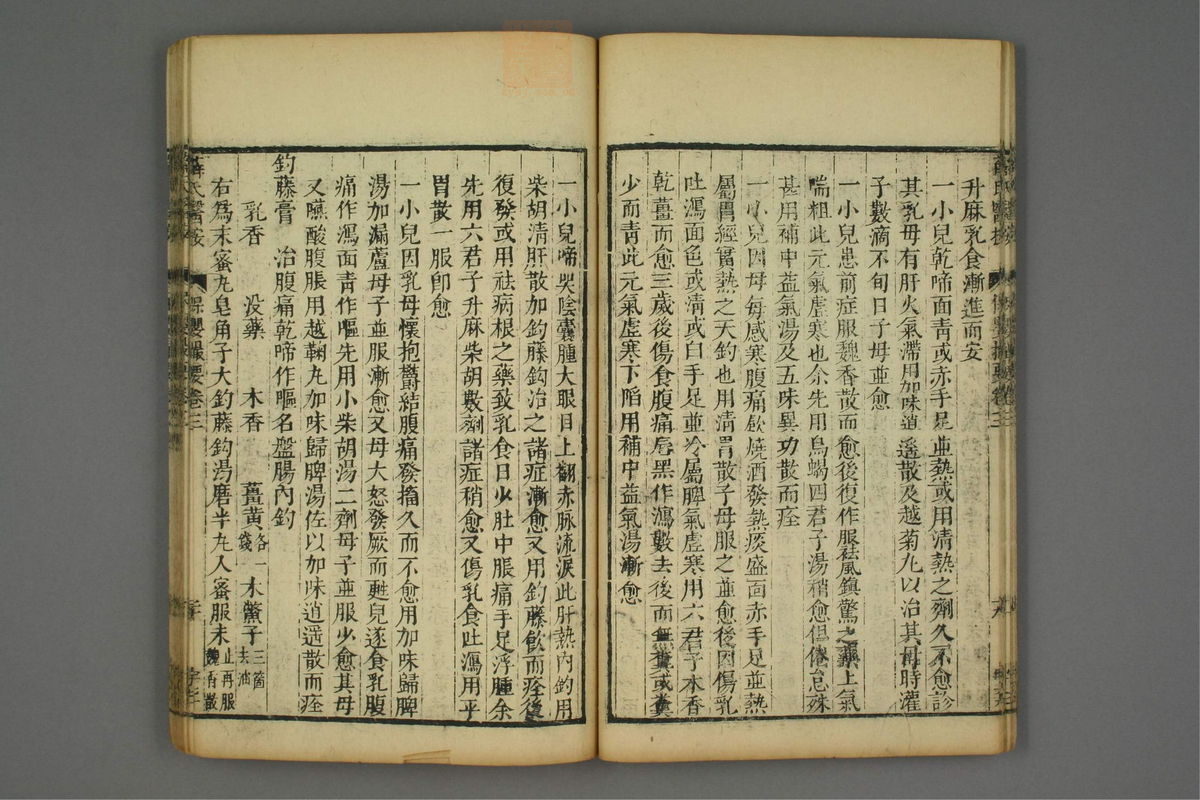 升麻乳食漸進而安
一小兒乾啼面青或赤手足並熱或用清熱之劑久不愈診
其乳母有肝火氣滯用加味逍遙散及越菊丸以治其母時灌
子數滴不旬日子母並愈
一小兒患前症服魏香散而愈後復作服祛風鎮驚之藥上氣
喘粗此元氣虛寒也余先用烏蝎四君子湯稍愈但倦怠殊
甚用補中益氣湯及五味異功散而痊
一小兒因母每感寒腹痛飲燒酒發熱痰盛面赤手足並熱
屬胃經實熱之天釣也用清胃散子母服之並愈後因傷乳
吐瀉面色或清或白手足並冷屬脾氣虛寒用六君子木香
乾薑而愈三歲後傷食腹痛唇黑作瀉數去後而無糞或糞
少而青此元氣虛寒下陷用補中益氣湯漸愈
一小兒啼哭陰囊腫大眼目上翻赤脉流淚此肝熱內釣用
柴胡清肝散加鈎藤鈎治之諸症漸愈又用鈎藤飲而痊後
復發或用祛病根之藥致乳食日少肚中脹痛手足浮腫余
先用六君子升麻柴胡數劑諸症稍愈又傷乳食吐瀉用平
胃散一服卽愈
一小兒因乳母懷抱鬱結腹痛發搐久而不愈用加味歸脾
湯加漏蘆母子並服漸愈又母大怒發厥而甦兒遂食乳腹
痛作瀉面青作嘔先用小柴胡湯二劑母子並服少愈其母
又嚥酸腹脹用越鞠丸加味歸脾湯佐以加味逍遥散而痊
鈎藤膏 治腹痛乾啼作嘔名盤腸內釣
乳香 没藥 木香 薑黃各一錢 木鱉子三箇去油
右爲末蜜丸皂角子大鈎藤鈎湯磨半丸入蜜服未止再服魏香散
薛氏醫按 保嬰撮要卷三